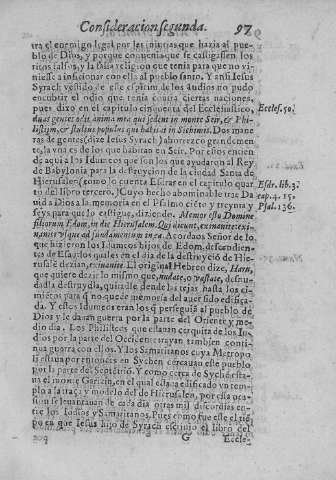 Consideracion segunda. 97
tra el enemigo legal por les injurias que hazia al pue-
blo de Dios, y porque conuenia que se castigassen los
ritos falsos, y la falsa religion que tenia para que no vi-
niesse a inficionar con ella al pueblo santo. Y ansi Iesus
Syrach vestido de este espiritu de los Iudios no pudo
encubrir el odio que tenia contra ciertas naciones,
pues dixo en el capitulo cinquenta del Ecclesiastico,
Eccles. 50.
duas gentes odit anima mea qui sedent in monte Seir, & Phi-
listijm, & stultus populus qui habitat in Sichimis. Dos mane-
ras de gentes (dize Iesus Syrach) aborrezco grandemen-
te, la vna es de los que habitan en Seir. Por estos entien-
de aqui a los Idumeos que son los que ayudaron al Rey
de Babylonia para la destruycion de la ciudad Santa de
Hierusalen (como lo cuenta Esdras en el capitulo quar-
Esdr. lib. 3.
to del libro tercero.) Cuyo hecho abominable trae Da-
cap. 4. 15.
uid a Dios a la memoria en el Psalmo ciēto y treynta y
Psal. 136.
seys para que lo castigue, diziendo. Memor esto Domine
filiorum Edom, in die Hierusalem. Qui dicunt, exinanite: exi-
nanite vsque ad fundamentum in ea. Acordaos Señor de lo
que hizieron los Idumeos hijos de Edom, descendien-
tes de Esau los quales en el dia de la destruyciō de Hie-
rusalē dezian, exinanite. El original Hebreo dize, Haru,
que quiere dezir lo mismo que, nudate, o vastate, desnu-
dadla destruydla, quitadle desde las tejas hasta los ci-
miētos para q̄ no quede memoria del auer sido edifica-
da. Y estos Idumeos eran los q̄ perseguiā al pueblo de
Dios y le dauan guerra por la parte del Oriente y me-
dio dia. Los Philisteos que estauan cerquita de los Iu-
dios por la parte del Occidente trayan tambien conti-
nua guerra con ellos. Y los Samaritanos cuya Metropo
li estaua por entonces en Sychen cercauan este pueblo
por la parte del Septētriō. Y como cerca de Sychē esta-
ua el monte Garizin, en el qual estaua edificado vn tem-
plo a la traça y modelo del de Hierusalen, por esta oca-
sion se leuantauan de cada dia otras mil discordias en-
tre los Iudios y Samaritanos. Pues como fue este el tiē-
po en que Iesus hijo de Syrach escriuio el libro del
G Eccle-